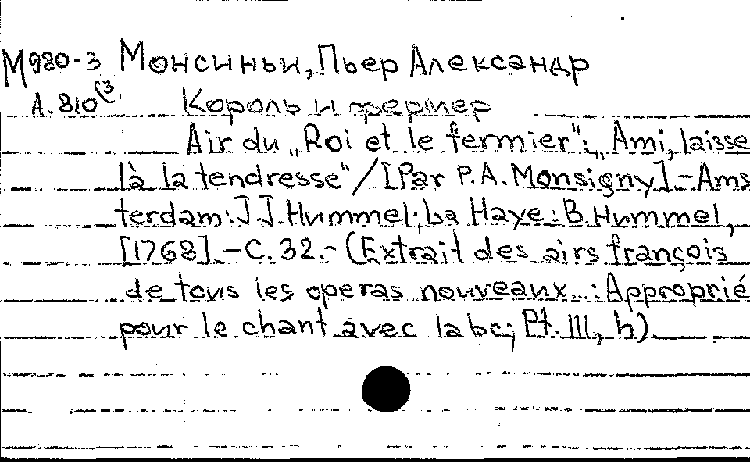 М980-3 Монсиньи, Пьер Александр
А.810(3 Король и фермер
Air du „Roi et le fermier": „Ami, laisse
là la tendresse"/[Par P.A. Monsigny].-Ams
terdam: J J. Hummel; La Haye: B. Hummel,
[1768].-C. 32.-(Extrait des airs françois
de tous les operas nouveaux...: Approprié
pour le chant avec la bc; Pt. III, h)